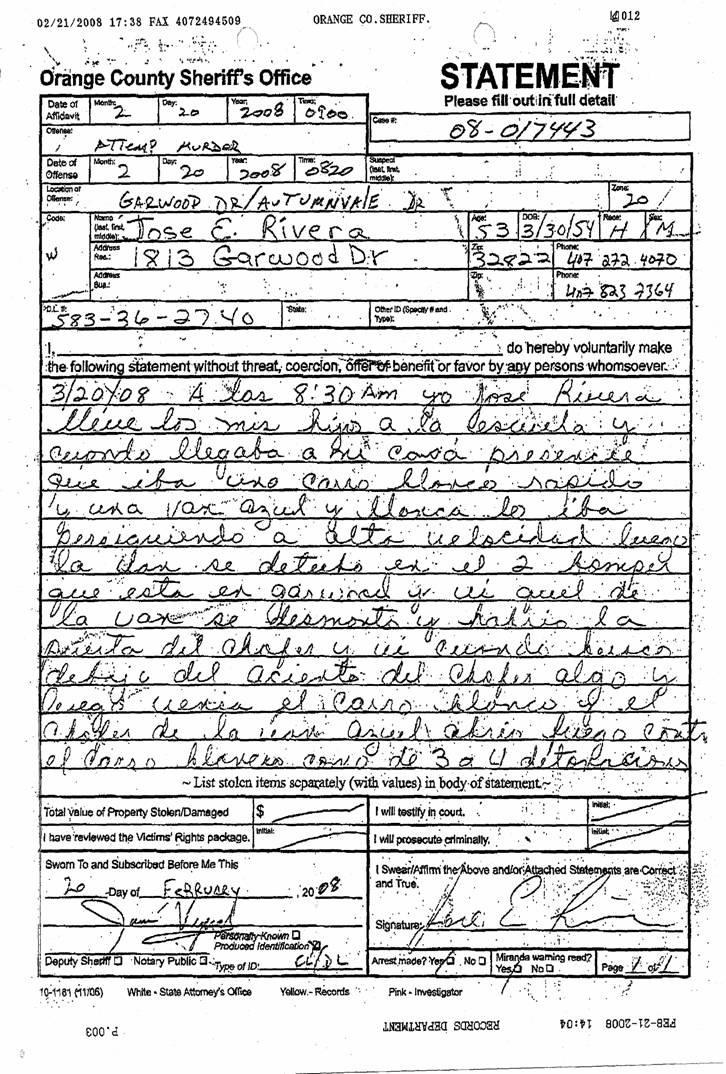 02/21/2008 17:38 FAX 4072494509 ORANGE CO.SHERIFF. 012
Orange County Sheriff's Office
STATEMENT
Please fill out in full detail
Date of Affidavit Month: 2 Day: 20 Year: 2008 Time: 0900
Case #: 08-017443
Offense: ATTEMP MURDER
Date of Offense Month: 2 Day: 20 Year: 2008 Time: 0820 Suspect (last, first, middle):
Location of Offense: GARWOOD DR/AUTUMNVALE DR Zone: 20
Code: W Name (last, first, middle): Jose E. Rivera Age: 53 DOB: 3/30/54 Race: H Sex: M
Address Res.: 1813 Garwood Dr Zip: 32822 Phone: 407 272 4070
Address Bus.: Zip: Phone: 407 823 2364
D.L. #: 583-26-2740 State: Other ID (Specify # and Type):
I, do hereby voluntarily make
the following statement without threat, coercion, offer of benefit or favor by any persons whomsoever.
3/20/08 A las 8:30 Am yo Jose Rivera
lleve los mis hijo a la escuela y
cuando llegaba a mi casa presencie
que iba uno carro blanco rapido
y una van azul y blanca lo iba
persiguiendo a alta velocidad luego
la van se detubo en el 2 bomper
que esta en garwood y vi quel de
la van se desmonto y habrio la
puerta del chofer y vi cuando busco
debajo del aciento del chofer algo y
luego venia el carro blanco y el
chofer de la van azul abrio fuego contr
el carro blanco como de 3 a 4 detonaciones
~ List stolen items separately (with values) in body of statement. ~
Total Value of Property Stolen/Damaged $ I will testify in court. Initial:
I have reviewed the Victims' Rights package. Initial: I will prosecute criminally. Initial:
Sworn To and Subscribed Before Me This
20 Day of FEBRUARY , 2008
I Swear/Affirm the Above and/or Attached Statements are Correct and True.
Signature: Jose E Rivera
Personally Known
Produced Identification
Deputy Sheriff Notary Public Type of ID: CL/DL
Arrest made? Yes No Miranda warning read? Yes No Page 1 of 1
10-1181 (11/06) White - State Attorney's Office Yellow - Records Pink - Investigator
P.003 RECORDS DEPARTMENT FEB-21-2008 14:04